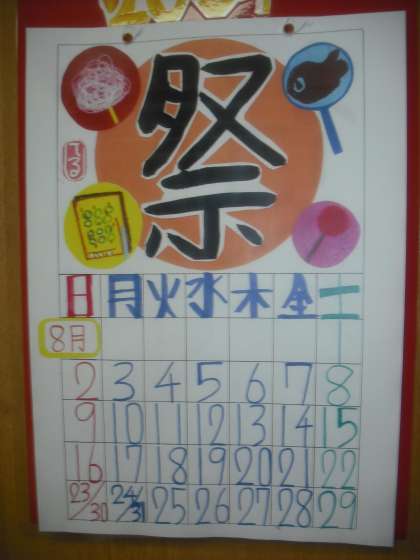 祭
てる
日 月 火 水 木 金 土
8月
1
2 3 4 5 6 7 8
9 10 11 12 13 14 15
16 17 18 19 20 21 22
23/30 24/31 25 26 27 28 29